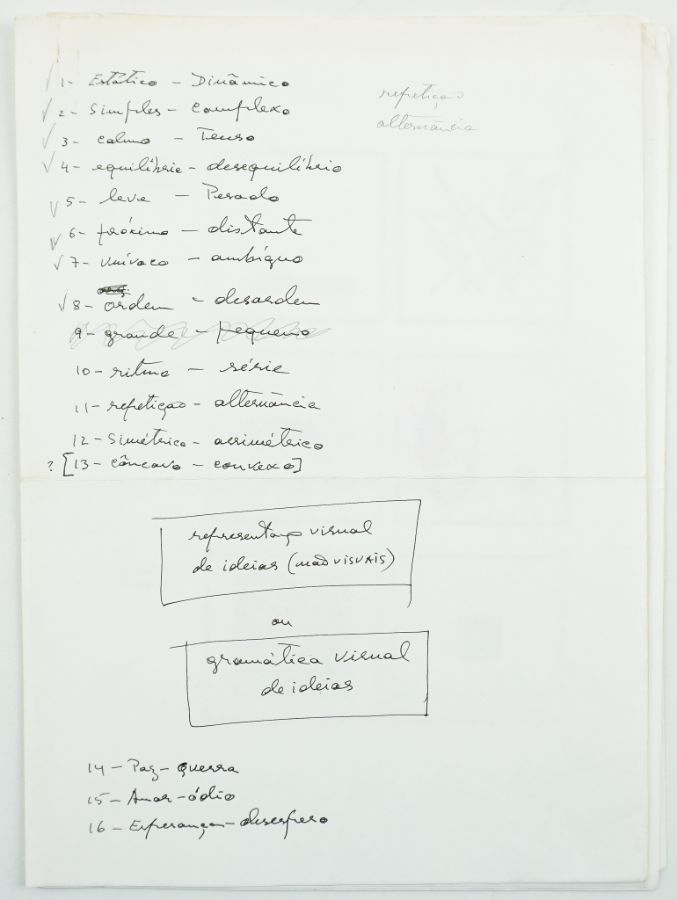 √ 1- Estático - Dinâmico
√ 2- Simples - complexo
√ 3- calmo - Tenso
√ 4- equilíbrio - desequilíbrio
√ 5- leve - Pesado
√ 6- próximo - distante
√ 7- unívoco - ambíguo
√ 8- ordem - desordem
9- grande - pequeno
10- ritmo - série
11- repetição - alternância
12- Simétrico - assimétrico
? [13- côncavo - convexo]
repetição
alternância
representação visual
de ideias (não VISUAIS)
ou
gramática visual
de ideias
14- Paz - guerra
15- Amor - ódio
16- Esperança - desespero